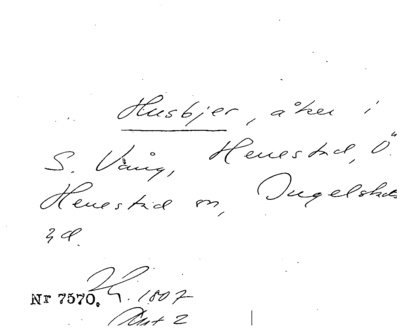 Husbjer, åker i
S. Vång, Herrestad, Ö.
Herrestad sn, Ingelstads
hd.
Nr 7570. 1807
Akt 2